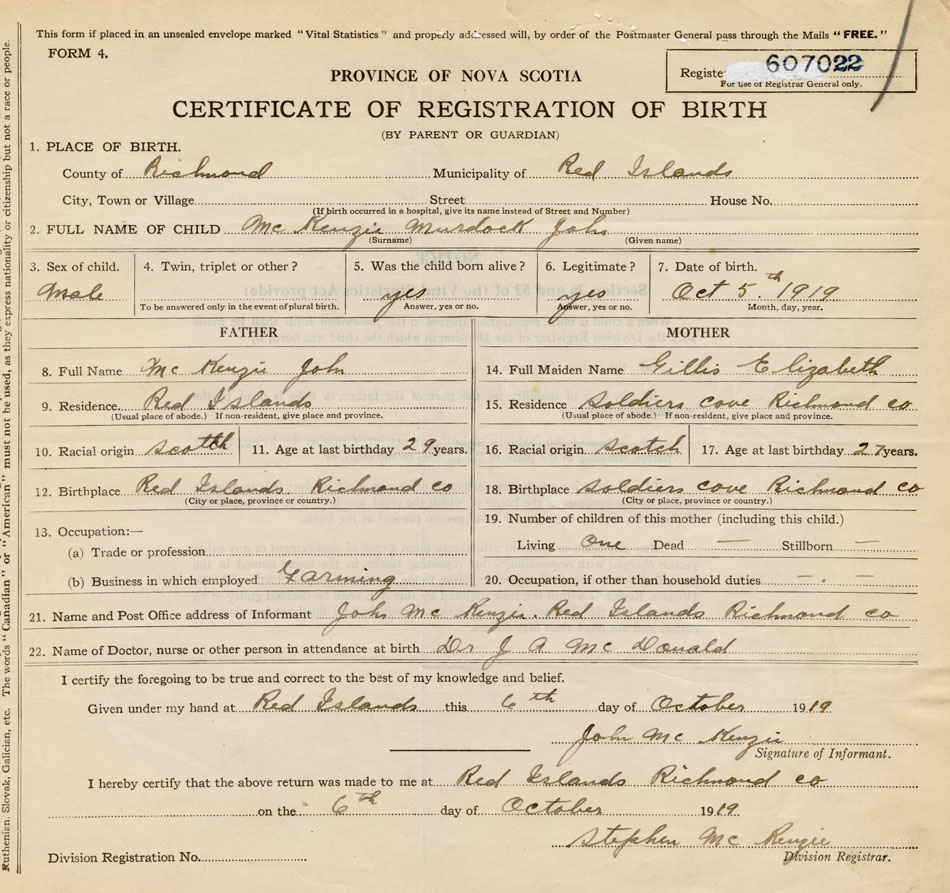 This form if placed in an unsealed envelope marked "Vital Statistics" and properly addressed will, by order of the Postmaster General pass through the Mails "FREE."
FORM 4.
PROVINCE OF NOVA SCOTIA
Registe 607022
For use of Registrar General only.
CERTIFICATE OF REGISTRATION OF BIRTH
(BY PARENT OR GUARDIAN)
1. PLACE OF BIRTH.
County of Richmond Municipality of Red Islands
City, Town or Village Street House No.
(If birth occurred in a hospital, give its name instead of Street and Number)
2. FULL NAME OF CHILD Mc Kenzie Murdock John
(Surname) (Given name)
3. Sex of child. 4. Twin, triplet or other? 5. Was the child born alive? 6. Legitimate? 7. Date of birth.
Male yes yes Oct 5th 1919
To be answered only in the event of plural birth. Answer, yes or no. Answer, yes or no. Month, day, year.
FATHER MOTHER
8. Full Name Mc Kenzie John 14. Full Maiden Name Gillis Elizabeth
9. Residence Red Islands 15. Residence Soldiers cove Richmond co
(Usual place of abode.) If non-resident, give place and province. (Usual place of abode.) If non-resident, give place and province.
10. Racial origin 11. Age at last birthday 29 years. 16. Racial origin scotch 17. Age at last birthday 27 years.
12. Birthplace Red Islands Richmond co 18. Birthplace Soldiers cove Richmond co
(City or place, province or country.) (City or place, province or country.)
13. Occupation:— 19. Number of children of this mother (including this child.)
(a) Trade or profession Living One Dead — Stillborn —
(b) Business in which employed Farming 20. Occupation, if other than household duties — . —
21. Name and Post Office address of Informant John Mc Kenzie. Red Islands Richmond co
22. Name of Doctor, nurse or other person in attendance at birth Dr J A Mc Donald
I certify the foregoing to be true and correct to the best of my knowledge and belief.
Given under my hand at Red Islands this 6th day of October 1919
John Mc Kenzie
Signature of Informant.
I hereby certify that the above return was made to me at Red Islands Richmond co
on the 6th day of October 1919.
Stephen Mc Kenzie
Division Registration No. Division Registrar.
Ruthenian, Slovak, Galician, etc. The words "Canadian" or "American" must not be used, as they express nationality or citizenship but not a race or people.